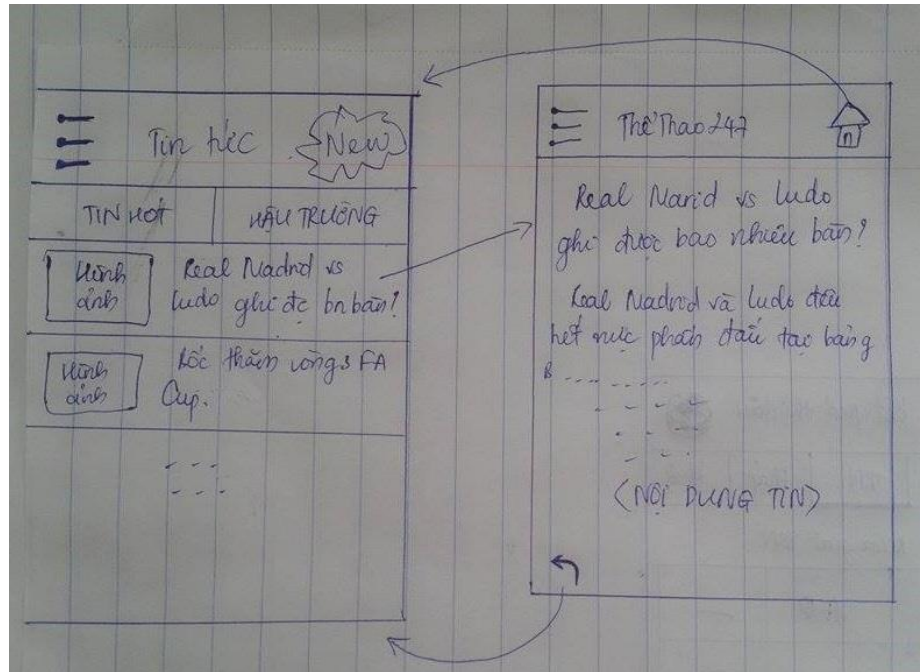 Tin tức
New
TIN HOT
HẬU TRƯỜNG
Hình
ảnh
Real Madrid vs
ludo ghi đc bn bàn?
Hình
ảnh
Bốc thăm vòng 3 FA
Cup.
Thể Thao 247
Real Marid vs ludo
ghi được bao nhiêu bàn?
Real Madrid và ludo đều
hết mực phấn đấu tạo bảng
B
(NỘI DUNG TIN)